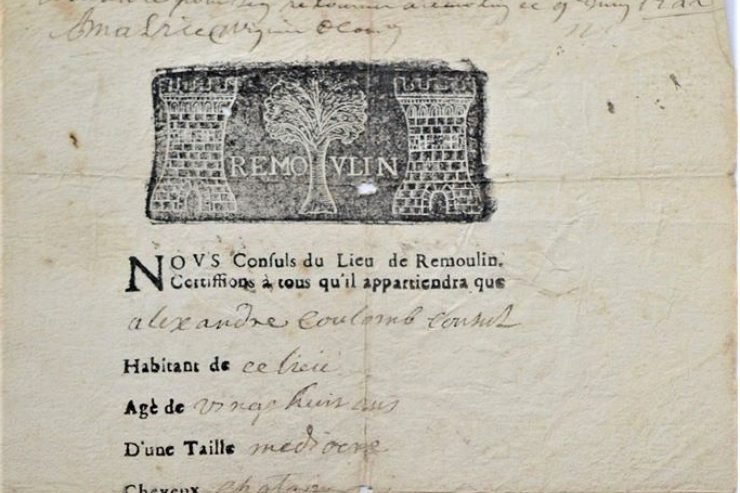 retourner
REMOVLIN
NOVS Conſuls du Lieu de Remoulin,
Certiffions à tous qu'il appartiendra que
alexandre Coulomb Consul
Habitant de ce lieu
Agè de vingt huit ans
D'une Taille mediocre
Cheveux chatan